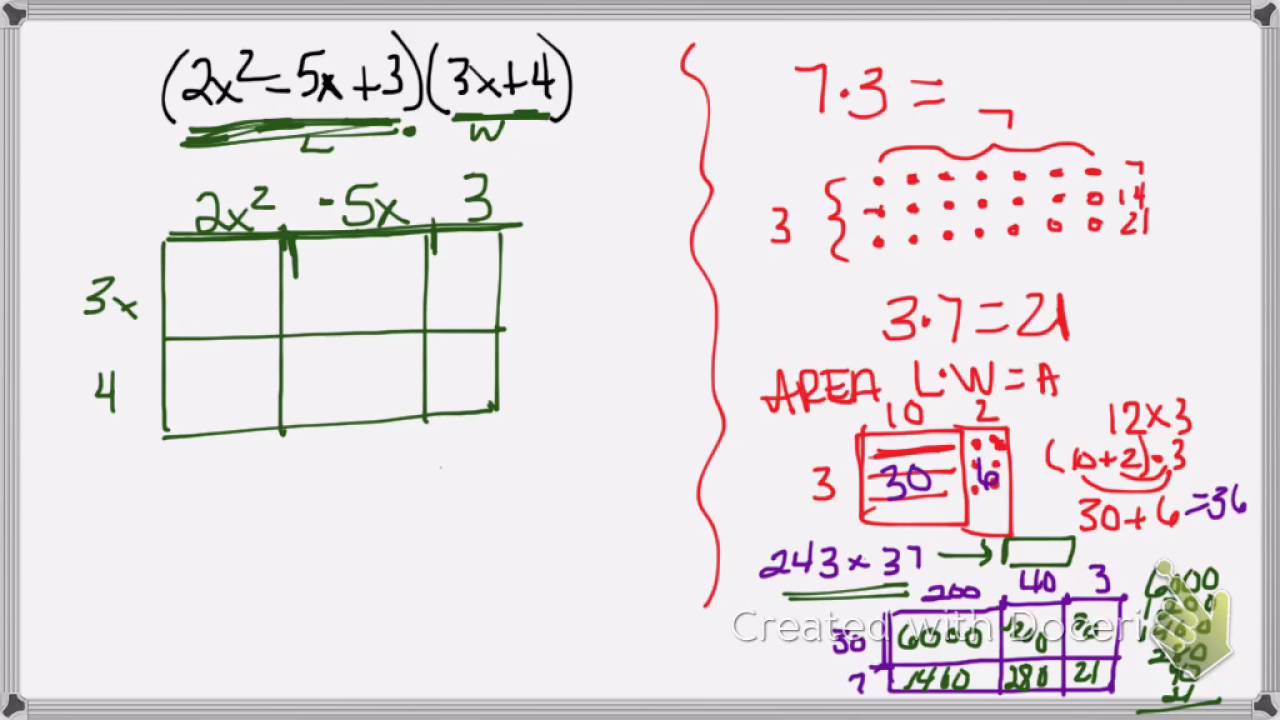 (2x² - 5x + 3)(3x + 4)
L · W
2x² -5x 3
3x
4
7·3 =
7
7
14
3
21
3·7 = 21
AREA L·W = A
10 2
12 x 3
3
30 6
(10 + 2)·3
30 + 6 = 36
243 x 37
200 40 3
30
6000
7
1400 280 21
6000
21
Created with Doceri